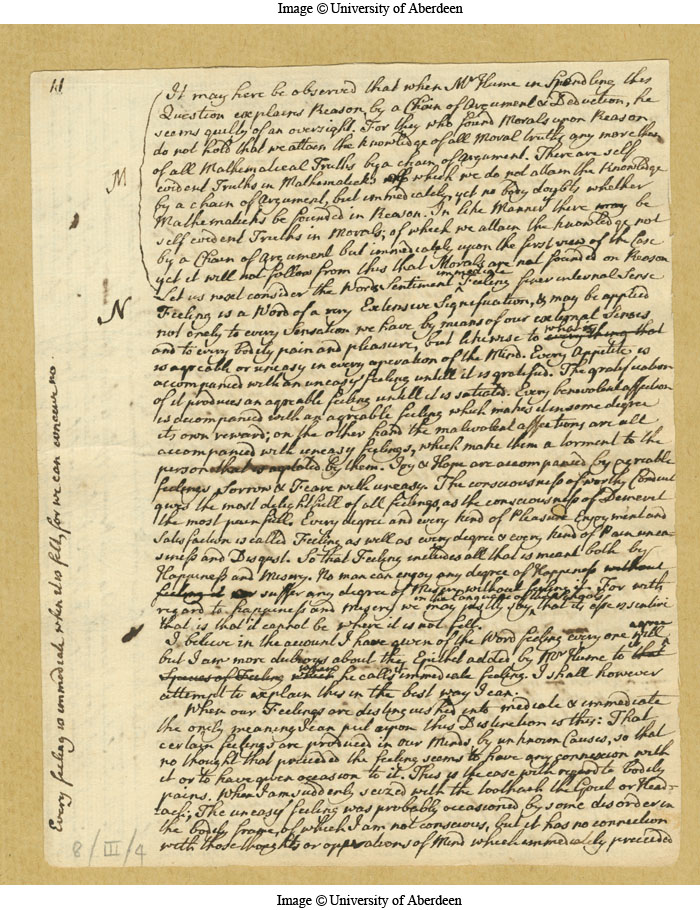 Image © University of Aberdeen
11
It may here be observed that when Mr Hume in this
Question explains Reason, by a Chain of Argument & Deduction, he
seems guilty of an oversight. For they who found Morals upon Reason
do not hold that we attain the knowledge of all Moral truths any more than
of all Mathematical Truths by a chain of Argument. There are self
evident Truths in Mathematicks of which we do not attain the Knowledge
by a chain of Argument, but immediately, yet no body doubts whether
Mathematicks be founded in Reason. In like Manner there may be
self evident Truths in Morals, of which we attain the knowledge not
by a Chain of Argument but immediately upon the first view of the Case
yet it will not follow from this that Morals are not founded on Reason
M
Let us next consider the Words Sentiment immediate Feeling finer internal Sense
N
Feeling is a Word of a very Extensive Signification, & may be applied
not onely to every Sensation we have by means of our external Senses
and to every bodily pain and pleasure, but likewise to every thing that
what is
is agreable or uneasy in every operation of the Mind. Every Appetite is
accompanied with an uneasy feeling untill it is gratified. The gratification
of it produces an agreable feeling untill it is satiated. Every benevolent affection
is accompanied with an agreable feeling which makes it in some degree
its own reward; on the other hand the malevolent affections are all
accompanied with uneasy feelings, which make them a torment to the
person that is agitated by them. Joy & Hope are accompanied by agreable
feelings, Sorrow & Feare with uneasy. The consciousness of worthy Conduct
gives the most delightfull of all feelings, as the consciousness of Demerit
the most painfull. Every degree and every kind of Pleasure Enjoyment and
Satisfaction is called Feeling as well as every degree & every kind of Pain unea-
siness and Disgust. So that Feeling includes all that is meant both by
Happiness and Misery. No man can enjoy any degree of Happiness without
feeling it or suffer any degree of Misery without feeling it. For with
in the language of
regard to happiness and misery we may justly say, that its esse is sentiri
that is that it cannot be where it is not felt.
I believe in the account I have given of the Word feeling every one will
agree
but I am more dubious about the Epithet added by Mr Hume to that
Species of Feeling which he calls immediate feeling. I shall however
when
attempt to explain this in the best way I can.
When our Feelings are distinguished into mediate & immediate
the onely meaning I can put upon this Distinction is this: That
certain feelings are produced in our Minds, by unknown Causes, so that
no thought that preceded the feeling seems to have any connexion with
it or to have given occasion to it. This is the case with regard to bodily
pains. When I am suddenly seized with the toothach the Gout or Head-
ach; The uneasy feeling was probably occasioned by some disorder in
the bodily frame, of which I am not conscious, but it has no connection
with those thoughts or opperations of Mind which immediately preceeded
Every feeling is immediate when it is felt, for we can conceive no
8/III/4
Image © University of Aberdeen